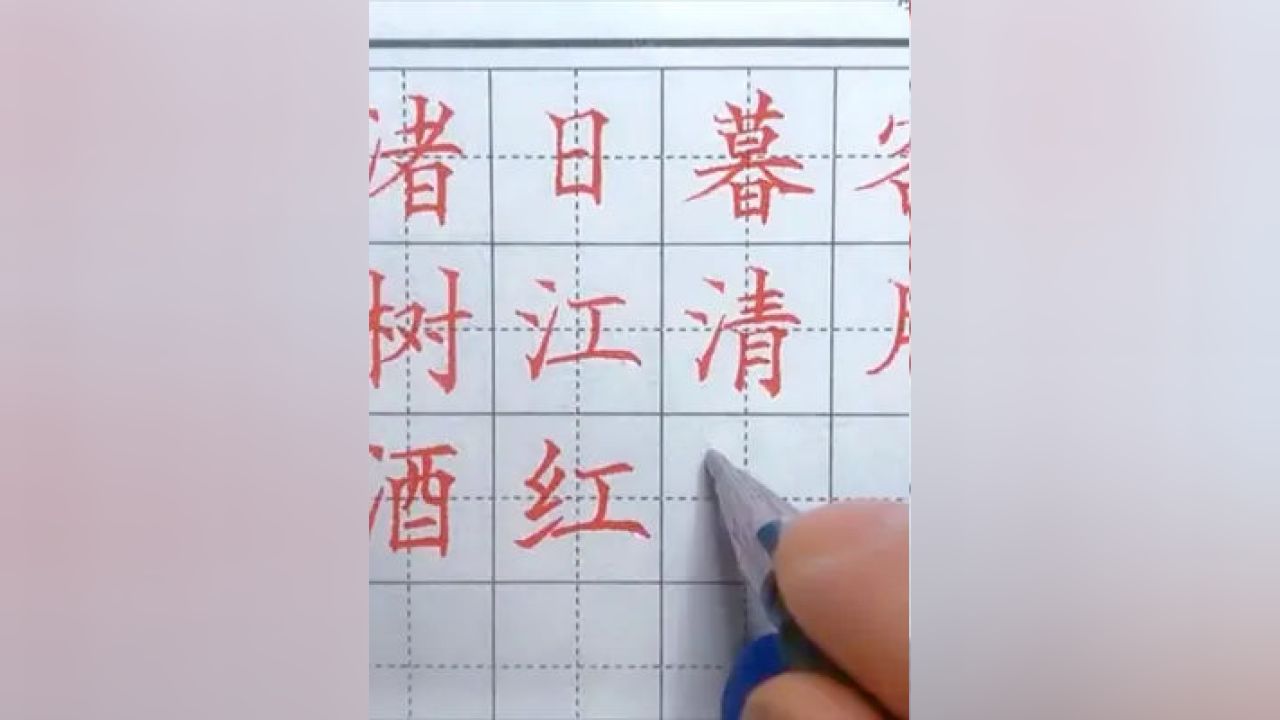 渚日暮
树江清
酒红